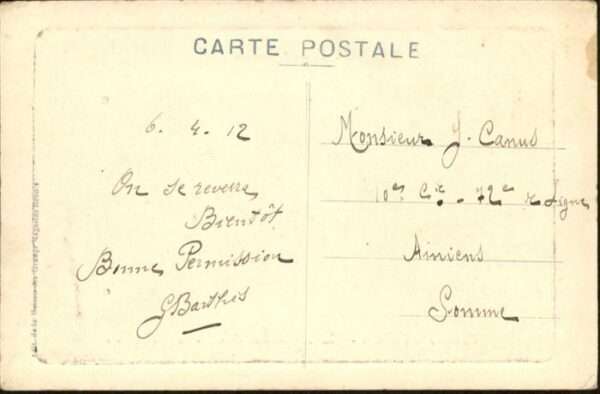 CARTE POSTALE
6. 4. 12
On se reverra
Bientôt
Bonne Permission
G Barthés
Monsieur J. Canus
10e Cie. 72e de Ligne
Amiens
Somme